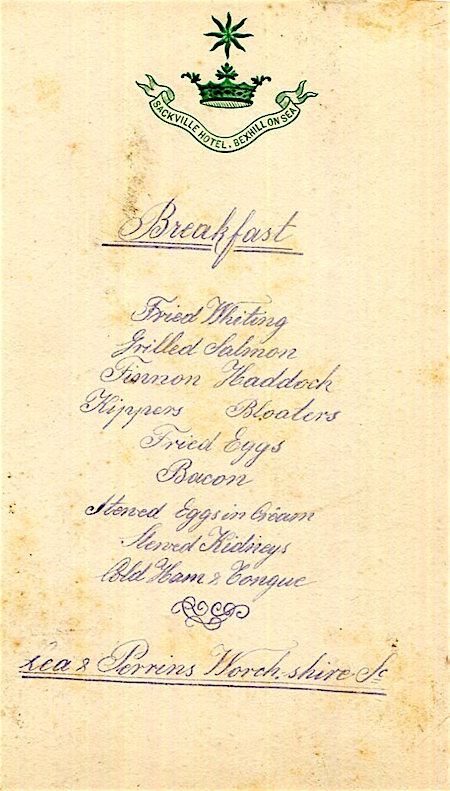 SACKVILLE HOTEL, BEXHILL ON SEA
Breakfast
Fried Whiting
Grilled Salmon
Finnon Haddock
Kippers Bloaters
Fried Eggs
Bacon
Stewed Eggs in Cream
Stewed Kidneys
Cold Ham & Tongue
Lea & Perrins Worch-shire Sc